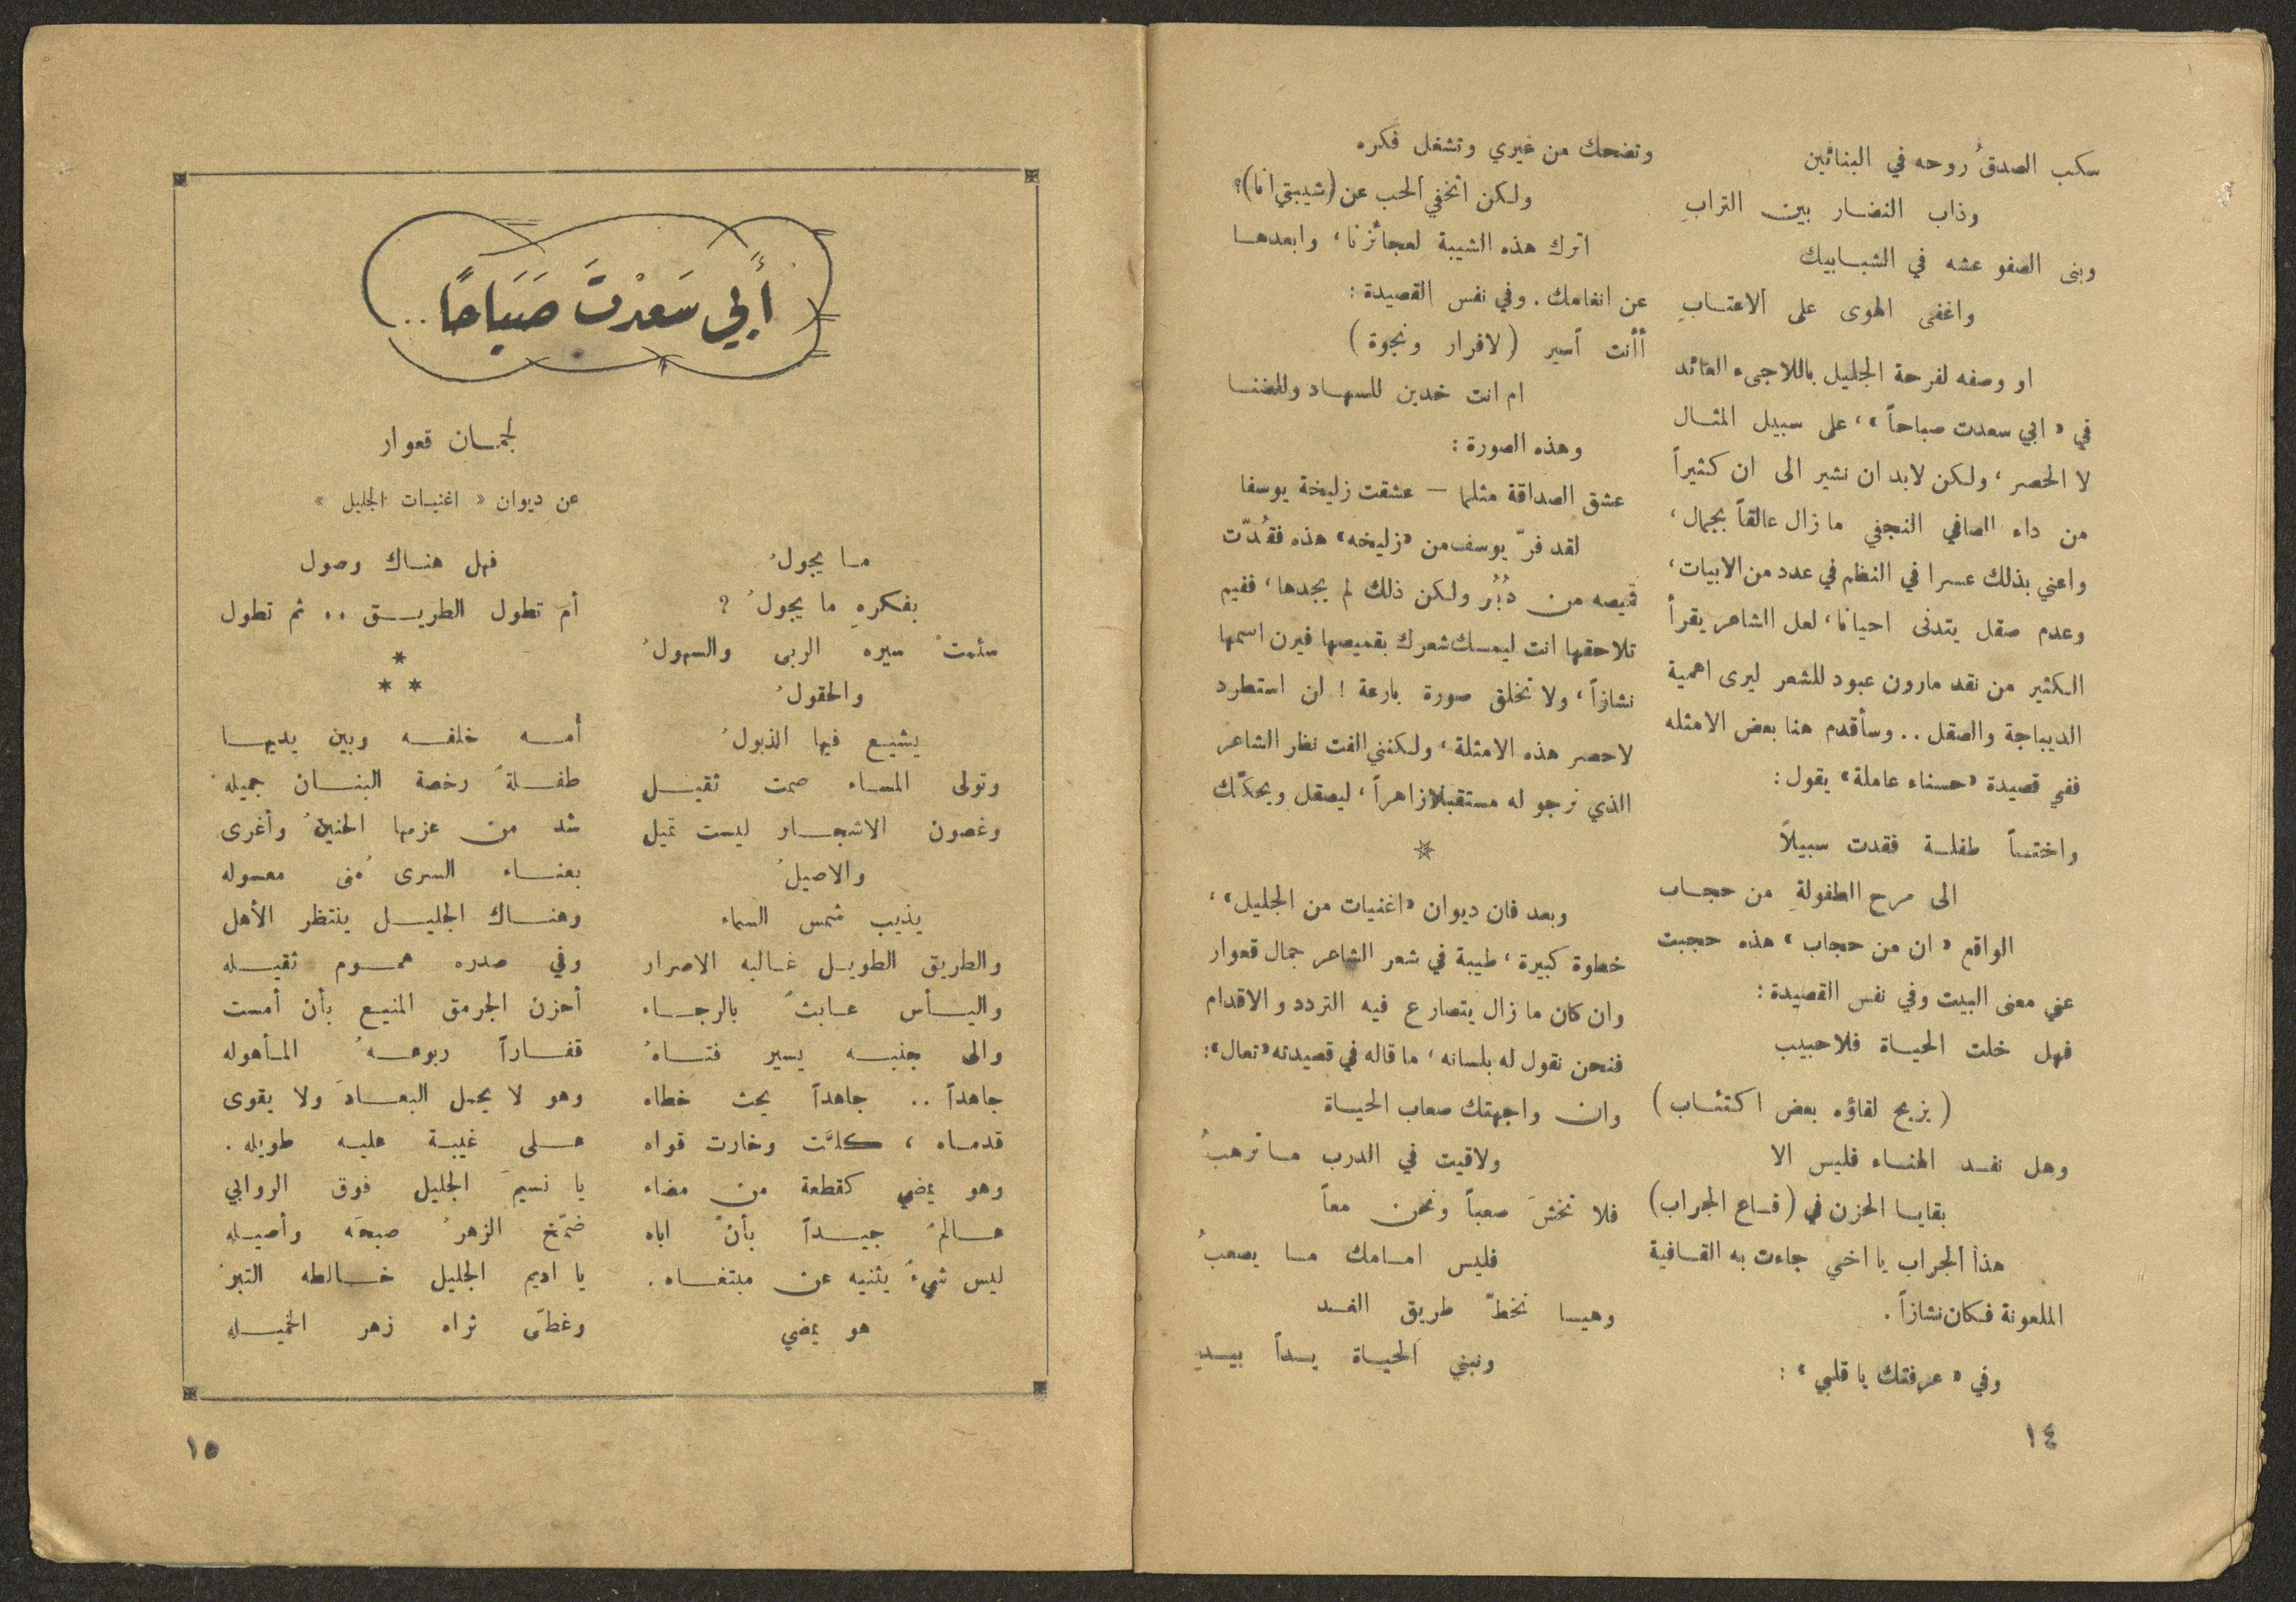 سكب الصدقُ روحه في البنائين
وذاب النضار بين الترابِ
وبنى الصفو عشه في الشبابيك
واغفى الهوى على الاعتابِ
او وصفه لفرحة الجليل باللاجىء العائد
في « ابي سعدت صباحاً » ، على سبيل المثال
لا الحصر ، ولكن لابد ان نشير الى ان كثيراً
من داء الصافي النجفي ما زال عالقاً بجمال ،
واعني بذلك عسرا في النظم في عدد من الابيات ،
وعدم صقل يتدنى احيانا ، لعل الشاعر يقرأ
الكثير من نقد مارون عبود للشعر ليرى اهمية
الديباجة والصقل .. وسأقدم هنا بعض الامثله
ففي قصيدة « حسناء عاملة » يقول :
واختساً طفلة فقدت سبيلاً
الى مرح الطفولةِ من حجاب
الواقع « ان من حجاب » هذه حجبت
عني معنى البيت وفي نفس القصيدة :
فهل خلت الحياة فلا حبيب
( يزيح لقاؤه بعض اكتئاب )
وهل نفد الهناء فليس الا
بقايا الحزن في ( قاع الجراب )
هذا الجراب يا اخي جاءت به القافية
الملعونة فكان نشازاً .
وفي « عرفتك يا قلبي » :
١٤
وتضحك من غيري وتشغل فكره
ولكن اتخفي الحب عن ( شيبتي انا ) ؟
اترك هذه الشيبة لعجائزنا ، وابعدها
عن انغامك . وفي نفس القصيدة :
أأنت أسير ( لافرار ونجوة )
ام انت خدين للسهاد وللضنا
وهذه الصورة :
عشق الصداقة مثلما — عشقت زليخة يوسفا
لقد فرّ يوسف من « زليخه » هذه فقُدّت
قميصه من دُبُر ولكن ذلك لم يجدها ، ففيم
تلاحقها انت ليمسك شعرك بقميصها فيرن اسمها
نشازاً ، ولا تخلق صورة بارعة ! لن استطرد
لاحصر هذه الامثلة ، ولكنني الفت نظر الشاعر
الذي نرجو له مستقبلا زاهراً ، ليصقل ويحكّك
*
وبعد فان ديوان « اغنيات من الجليل » ،
خطوة كبيرة ، طيبة في شعر الشاعر جمال قعوار
وان كان ما زال يتصارع فيه التردد والاقدام
فنحن نقول له بلسانه ، ما قاله في قصيدته « تعال » :
وان واجهتك صعاب الحياة
ولاقيت في الدرب ما ترهبُ
فلا تخشَ صعباً ونحن معاً
فليس امامك ما يصعبُ
وهيا نخطّ طريق الغد
ونبني الحياة يداً بيدِ
أَبِي سَعدْتَ صَبَاحًا ..
لجمان قعوار
عن ديوان « اغنيات الجليل »
ما يجولُ
بفكرهِ ما يجولُ ?
سئمتْ سيره الربى والسهولُ
والحقولُ
يشيع فيها الذبولُ
وتولى المساء صمت ثقيل
وغصون الاشجار ليست تميل
والاصيلُ
يذيب شمس السماء
والطريق الطويل غالبه الاصرار
واليأس عابثٌ بالرجاء
والى جنبه يسير فتاهُ
جاهداً .. جاهداً يحث خطاه
قدماه ، كلَّت وخارت قواه
وهو يمضي كقطعة من مضاء
عالمٌ جيداً بأنّ اباه
ليس شيءٌ يثنيه عن مبتغاه .
هو يمضي
فهل هناك وصول
أمَ تطول الطريق .. ثم تطول
*
* *
أمه خلفه وبين يديها
طفلةٌ رخصة البنان جميله
شد من عزمها الحنينُ وأغرى
بعناء السرى مُنى معسوله
وهناك الجليل ينتظر الأهل
وفي صدره هموم ثقيله
أحزن الجرمق المنيع بأن أمست
قفاراً ربوعهُ المأهوله
وهو لا يحمل البعادَ ولا يقوى
على غيبة عليه طويله .
يا نسيمَ الجليل فوق الروابي
ضمّخ الزهرُ صبحَه وأصيله
يا اديم الجليل خالطه التبرُ
وغطّى ثراه زهر الخميله
١٥